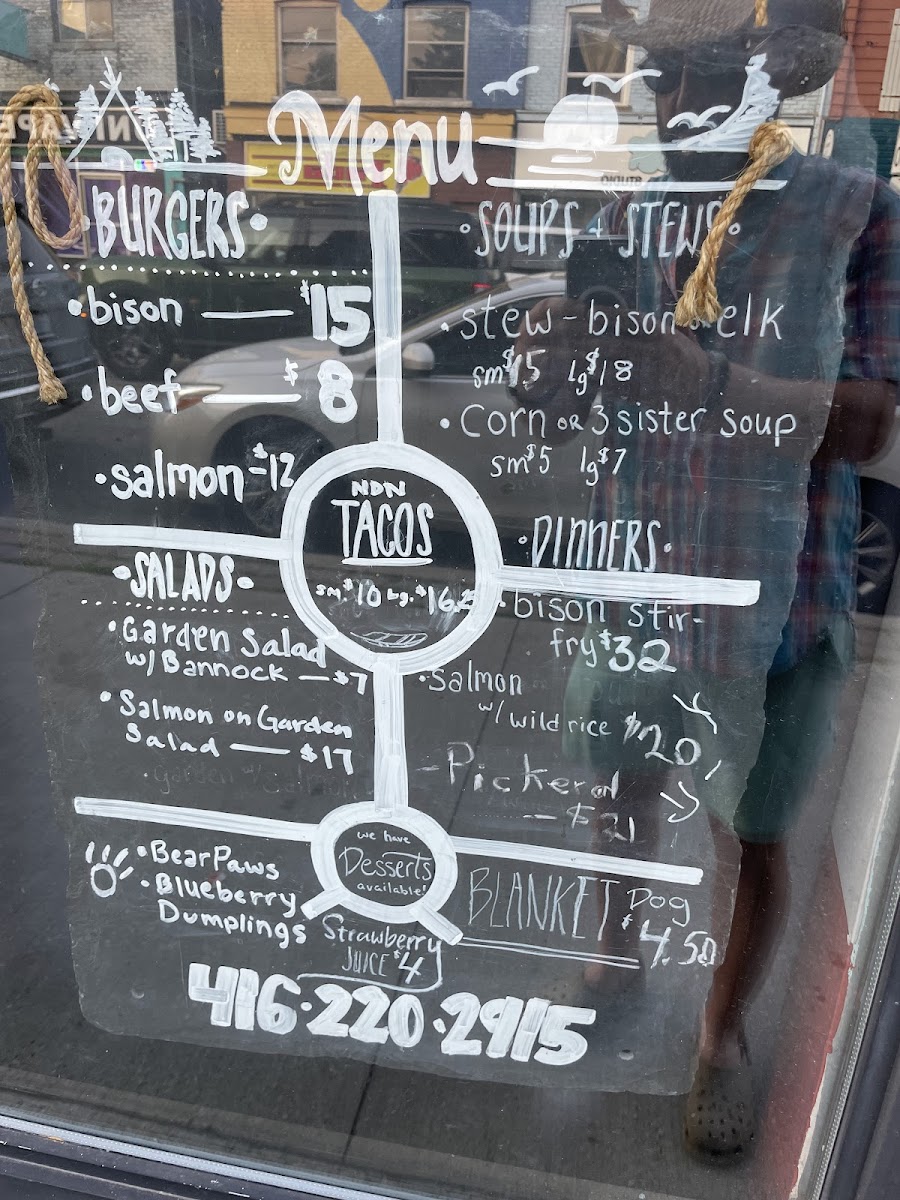 Menu
• BURGERS •
• bison — $15
• beef — $8
• salmon - $12
• SOUPS + STEWS •
• stew - bison or elk
sm $15 lg $18
• Corn OR 3 sister soup
sm $5 lg $7
NDN
TACOS
sm $10 Lg. $16.25
• SALADS •
• Garden Salad
w/ Bannock — $7
• Salmon on Garden
Salad — $17
• DINNERS •
• bison stir-
fry $32
• Salmon
w/ wild rice $20
- Pickerel
-- $21
we have
Desserts
available!
• Bear Paws
• Blueberry
Dumplings
Strawberry
JUICE $4
BLANKET Dog
$4.50
416·220·2915